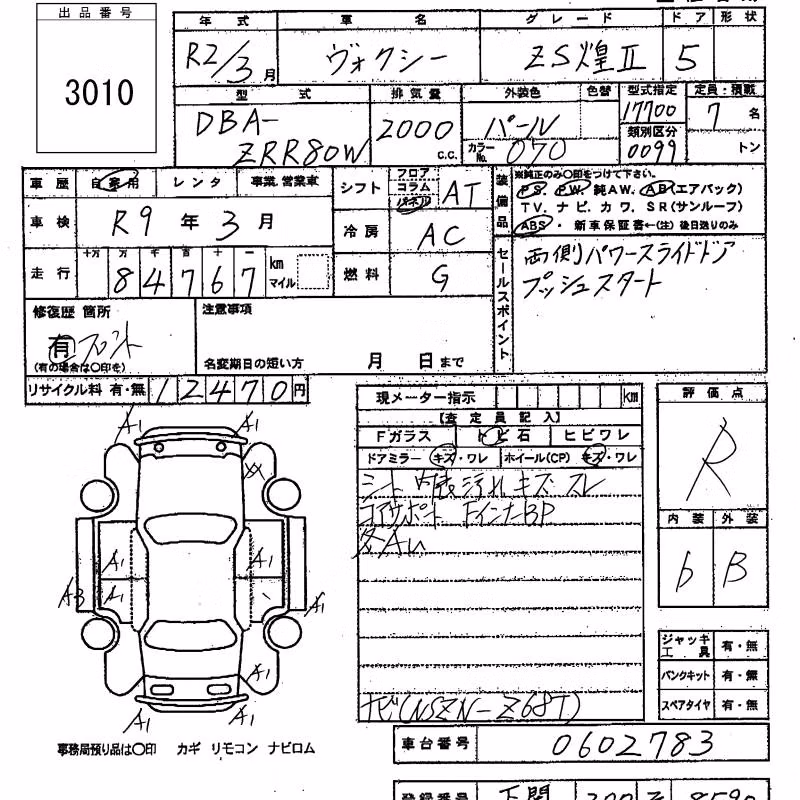 出品番号
3010
年式 車名 グレード ドア 形状
R2/3月 ヴォクシー ZS煌Ⅱ 5
型式 排気量 外装色 色替 型式指定 定員・積載
DBA-
ZRR80W
2000 c.c.
パール
カラーNo. 070
17700
類別区分
0099
7名
トン
車歴 自家用 レンタ 事業.営業車
シフト フロア コラム パネル AT
装備品
※純正のみ〇印をつけて下さい。
PS. PW. 純AW. AB(エアバック)
TV. ナビ. カワ. SR(サンルーフ)
ABS ・ 新車保証書←(注)後日送りのみ
車検 R9年3月
冷房 AC
走行 十万 万 千 百 十 一
84767 km マイル
燃料 G
セールスポイント
両側パワースライドドア
プッシュスタート
修復歴 箇所
有 フロント
(有の場合は〇印を)
注意事項
名変期日の短い方 月 日まで
リサイクル料 有・無 12470円
現メーター指示 km
【査定員記入】
Fガラス トビ石 ヒビワレ
ドアミラー キズ・ワレ ホイール(CP) キズ・ワレ
シート 内装汚れ キズ スレ
コアサポート FインナーBP
ナビ(NSZN-Z68T)
評価点
R
内装 外装
b B
ジャッキ工具 有・無
パンクキット 有・無
スペアタイヤ 有・無
A1 A1
A1 A1
A3 A1 A1
A1
A1 A1
事務局預り品は〇印 カギ リモコン ナビロム
車台番号 0602783
登録番号 下関 300